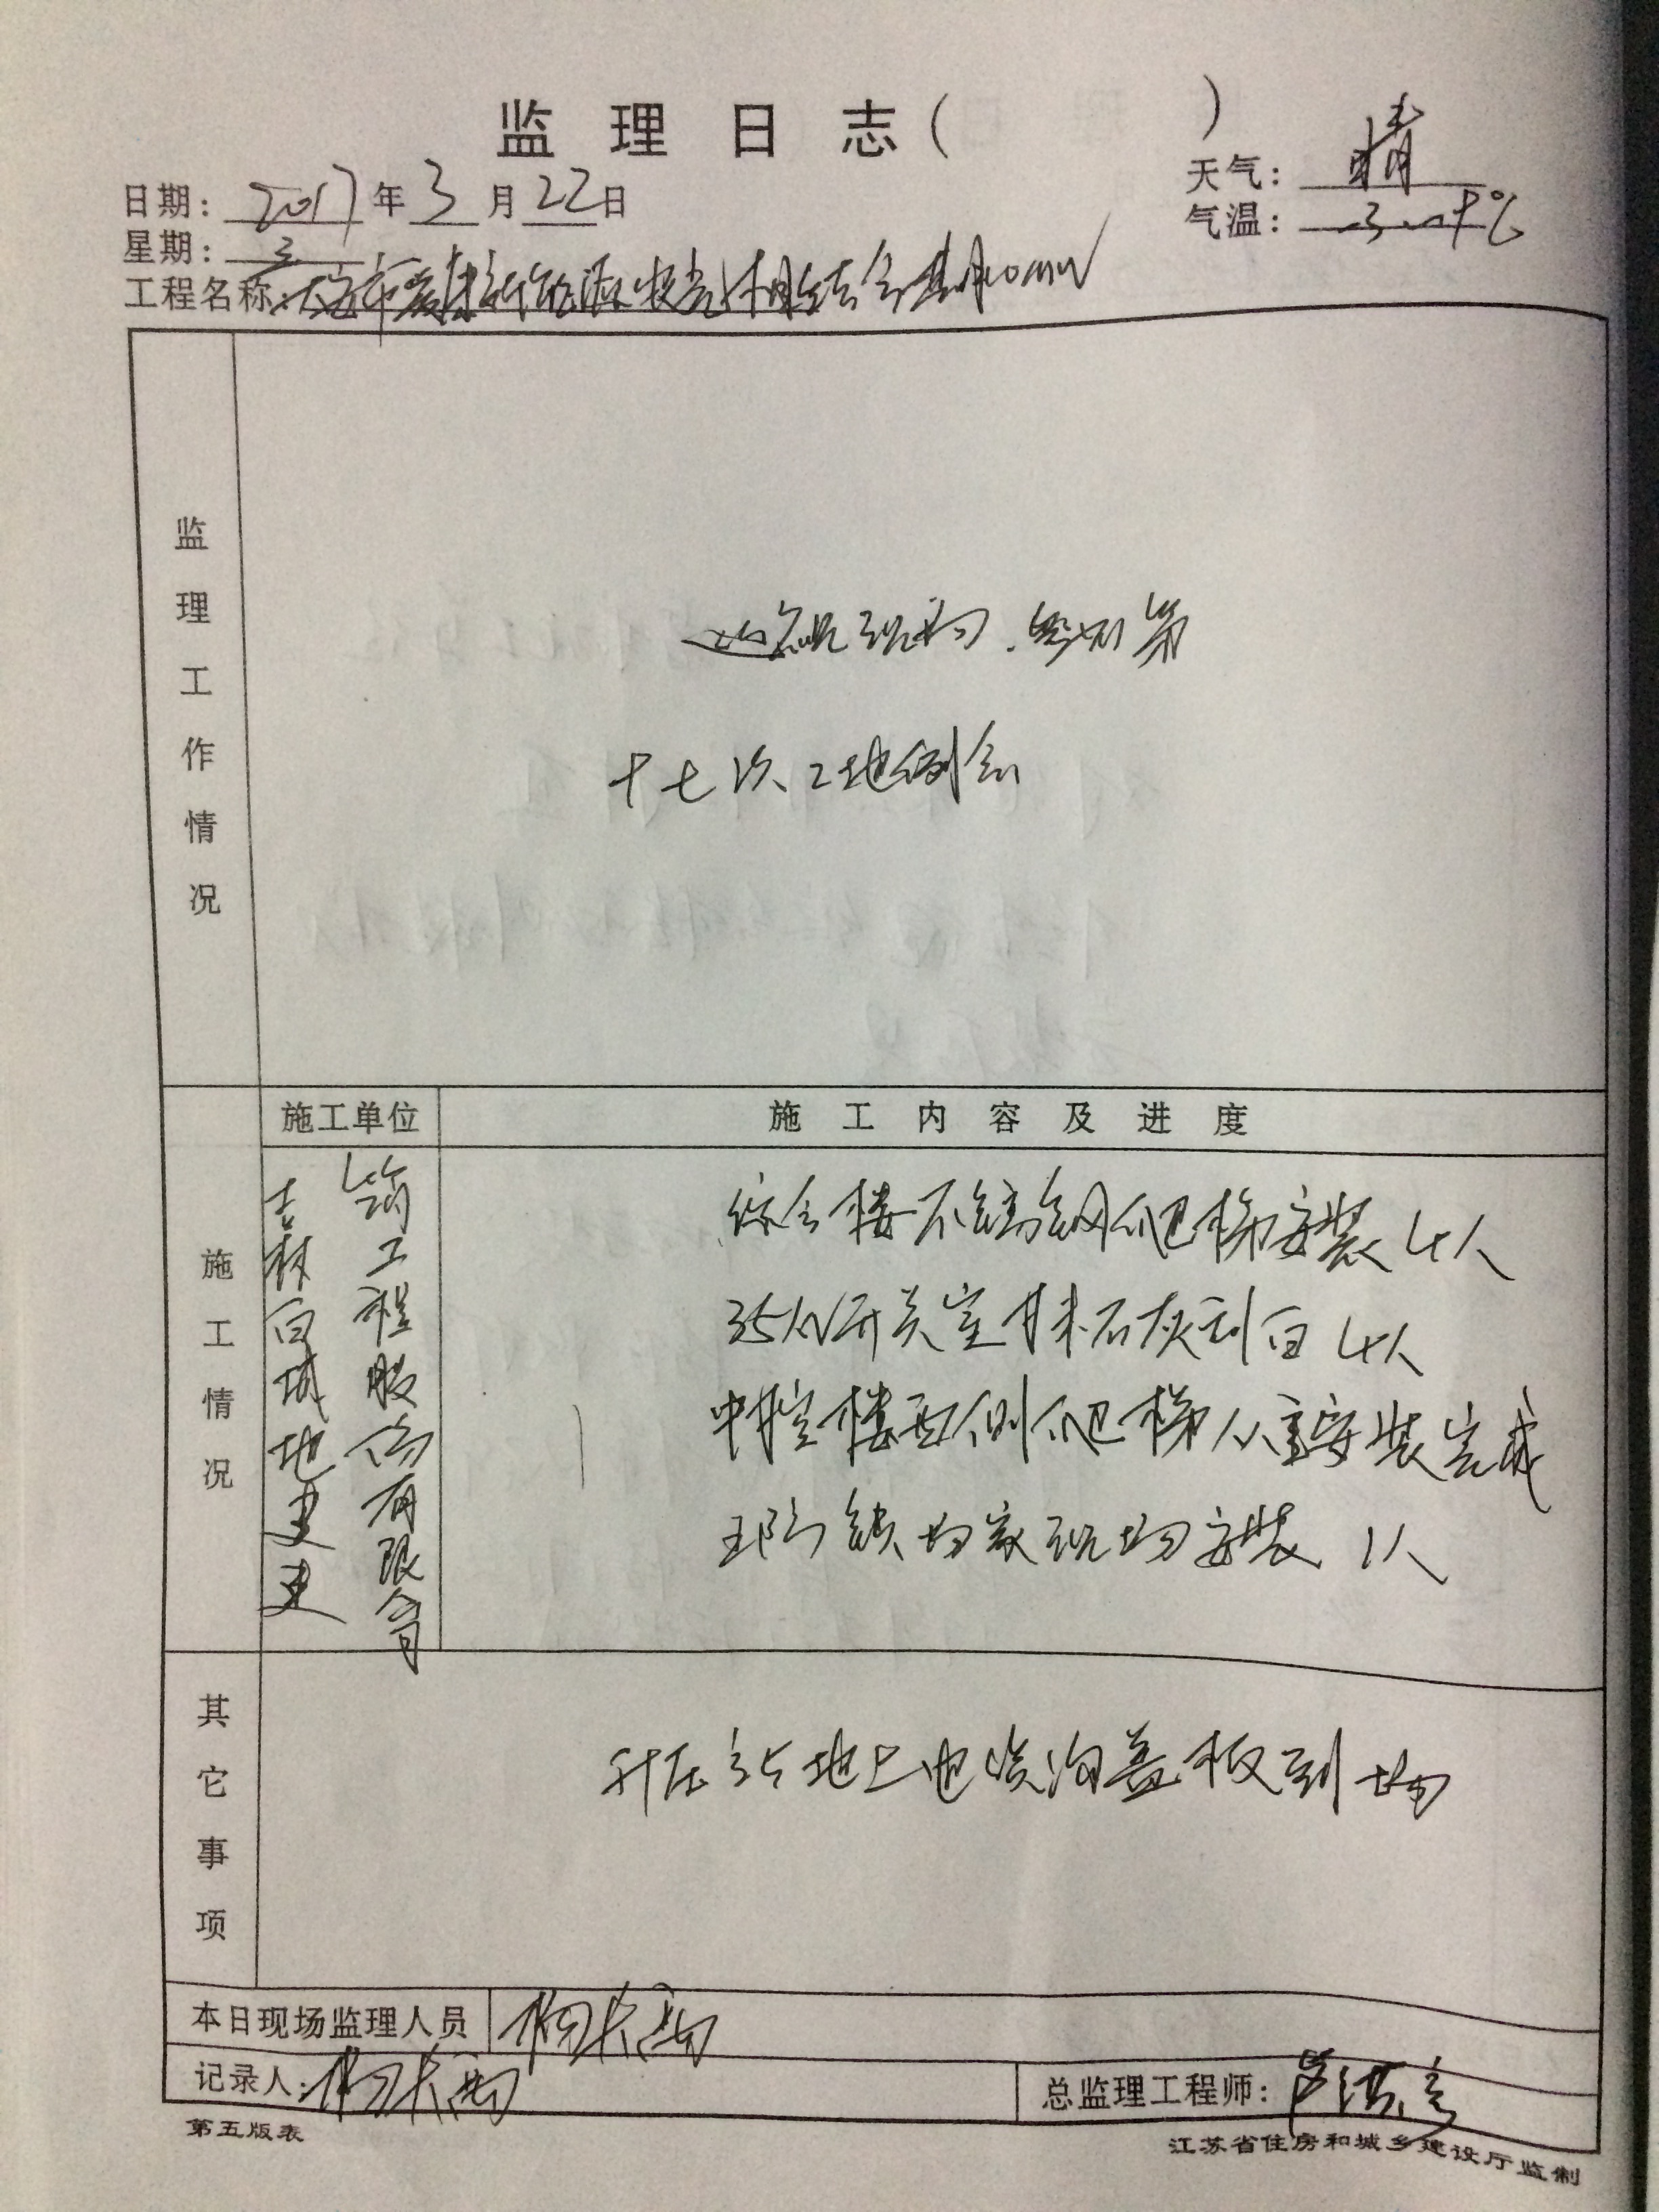 监理日志( )
天气: 晴
日期: 2017年3月22日
气温: -3~7℃
星期: 三
工程名称: 大安市爱康新能源牧光互相结合其用10MW
监理工作情况
巡视现场,参加第
十七次工地例会
施工单位
施工内容及进度
施工情况
吉林白城地建
筑工程股份有限公司
综合楼不锈钢爬梯安装4人
35kV开关室抹石灰刮白4人
中控楼西侧爬梯 安装完成
防 锁 家现场安装 1人
其它事项
升压站地上电缆沟盖板到场
本日现场监理人员
记录人:
总监理工程师:
第五版表
江苏省住房和城乡建设厅监制